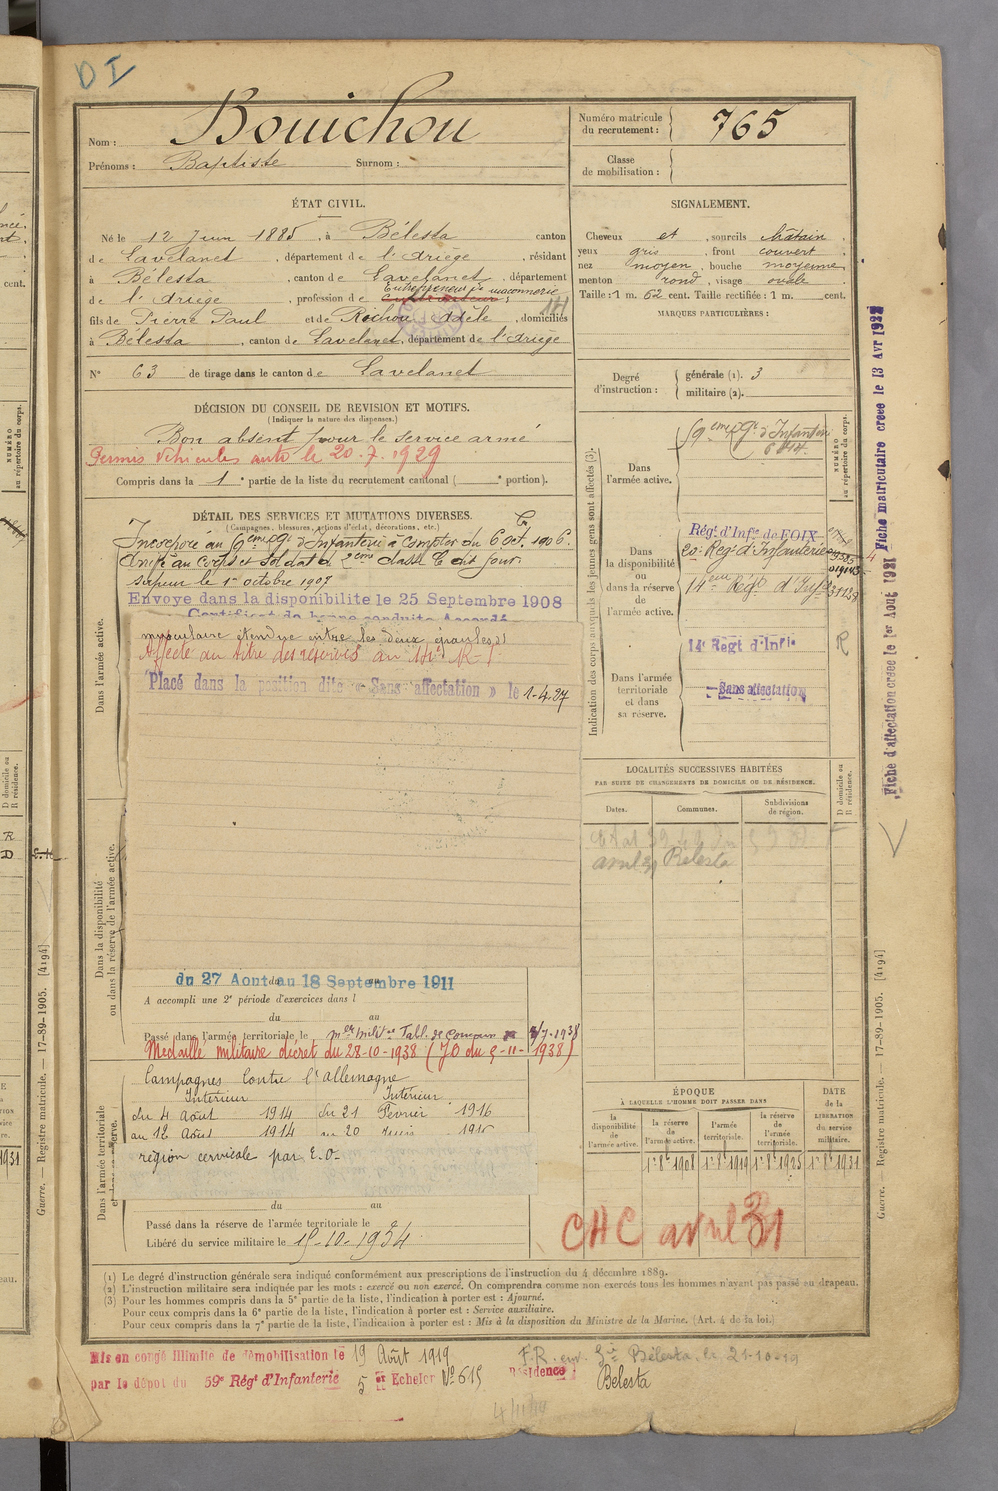 DI
Nom : Bouichou
Prénoms : Baptiste Surnom :
Numéro matricule du recrutement : 765
Classe de mobilisation :
ÉTAT CIVIL.
Né le 12 Juin 1885, à Bélesta canton
de Lavelanet, département de l'Ariège, résidant
à Bélesta, canton de Lavelanet, département
Entrepreneur de maçonnerie
de l'Ariège, profession de cultivateur
fils de Pierre Paul et de Rochou Adèle, domiciliés
à Bélesta, canton de Lavelanet, département de l'Ariège
N° 63 de tirage dans le canton de Lavelanet
SIGNALEMENT.
Cheveux et, sourcils châtain,
yeux gris, front couvert
nez moyen, bouche moyenne
menton rond, visage ovale
Taille : 1 m. 62 cent. Taille rectifiée : 1 m. cent.
MARQUES PARTICULIÈRES :
Degré d'instruction : générale (1). 3
militaire (2).
DÉCISION DU CONSEIL DE REVISION ET MOTIFS.
(Indiquer la nature des dispenses.)
Bon absent pour le service armé
Permis Véhicules auto le 20.7.1929
Compris dans la 1e partie de la liste du recrutement cantonal ( e portion).
DÉTAIL DES SERVICES ET MUTATIONS DIVERSES.
(Campagnes, blessures, actions d'éclat, décorations, etc.)
Incorporé au 9eme Rgt d'Infanterie à compter du 6 Oct. 1906.
Arrivé au corps et soldat de 2eme classe le dit jour.
Sapeur le 1er octobre 1907
Envoyé dans la disponibilité le 25 Septembre 1908
Certificat de bonne conduite Accordé
musculaire étendue entre les deux épaules
Affecté au titre des réserves au 14e R.I.
Placé dans la position dite « Sans affectation » le 1-4-27
du 27 Aout au 18 Septembre 1911
A accompli une 2e période d'exercices dans l
du au
Passé dans l'armée territoriale le
Médaille militaire décret du 28-10-1938 (JO du 5-11-1938)
Campagnes contre l'Allemagne
Intérieur Intérieur
du 4 Août 1914 du 21 Février 1916
au 12 Août 1914 au 20
région cervicale par E.O-
du au
Passé dans la réserve de l'armée territoriale le
Libéré du service militaire le 15-10-1934
Dans l'armée active.
Dans la disponibilité ou dans la réserve de l'armée active.
Dans l'armée territoriale
Indication des corps auxquels les jeunes gens sont affectés (3).
NUMÉRO au répertoire du corps.
Dans l'armée active.
9eme Rgt d'Infanterie
Dans la disponibilité ou dans la réserve de l'armée active.
Régt d'Infie de FOIX
Rég. d'Infanterie
14eme Régt d'Infie
14e Régt d'Infie
R
Dans l'armée territoriale et dans sa réserve.
Sans affectation
LOCALITÉS SUCCESSIVES HABITÉES
PAR SUITE DE CHANGEMENTS DE DOMICILE OU DE RÉSIDENCE.
Dates. Communes. Subdivisions de région. D domicile ou R résidence.
avril 31 Bélesta
ÉPOQUE
À LAQUELLE L'HOMME DOIT PASSER DANS
DATE de la LIBÉRATION du service militaire.
la disponibilité de l'armée active. la réserve de l'armée active. l'armée territoriale. la réserve de l'armée territoriale.
1er 8e 1908 1er 8e 1919 1er 8e 1925 1er 8e 1931
CHC avril 31
(1) Le degré d'instruction générale sera indiqué conformément aux prescriptions de l'instruction du 4 décembre 1889.
(2) L'instruction militaire sera indiquée par les mots : exercé ou non exercé. On comprendra comme non exercés tous les hommes n'ayant pas passé au drapeau.
(3) Pour les hommes compris dans la 5e partie de la liste, l'indication à porter est : Ajourné.
Pour ceux compris dans la 6e partie de la liste, l'indication à porter est : Service auxiliaire.
Pour ceux compris dans la 7e partie de la liste, l'indication à porter est : Mis à la disposition du Ministre de la Marine. (Art. 4 de la loi.)
Mis en congé illimité de démobilisation le 19 Août 1919
par le dépôt du 59e Régt d'Infanterie 5e Echelon N° 615
F.R. env. Gie Bélesta, le 21-10-19
Résidence : Bélesta
Fiche d'affectation créée le 1er Aout 1921 Fiche matriculaire créée le 13 Avr 1922
Guerre. — Registre matricule. — 17-89-1905. [4194]
Guerre. — Registre matricule. — 17-89-1905. [4194]